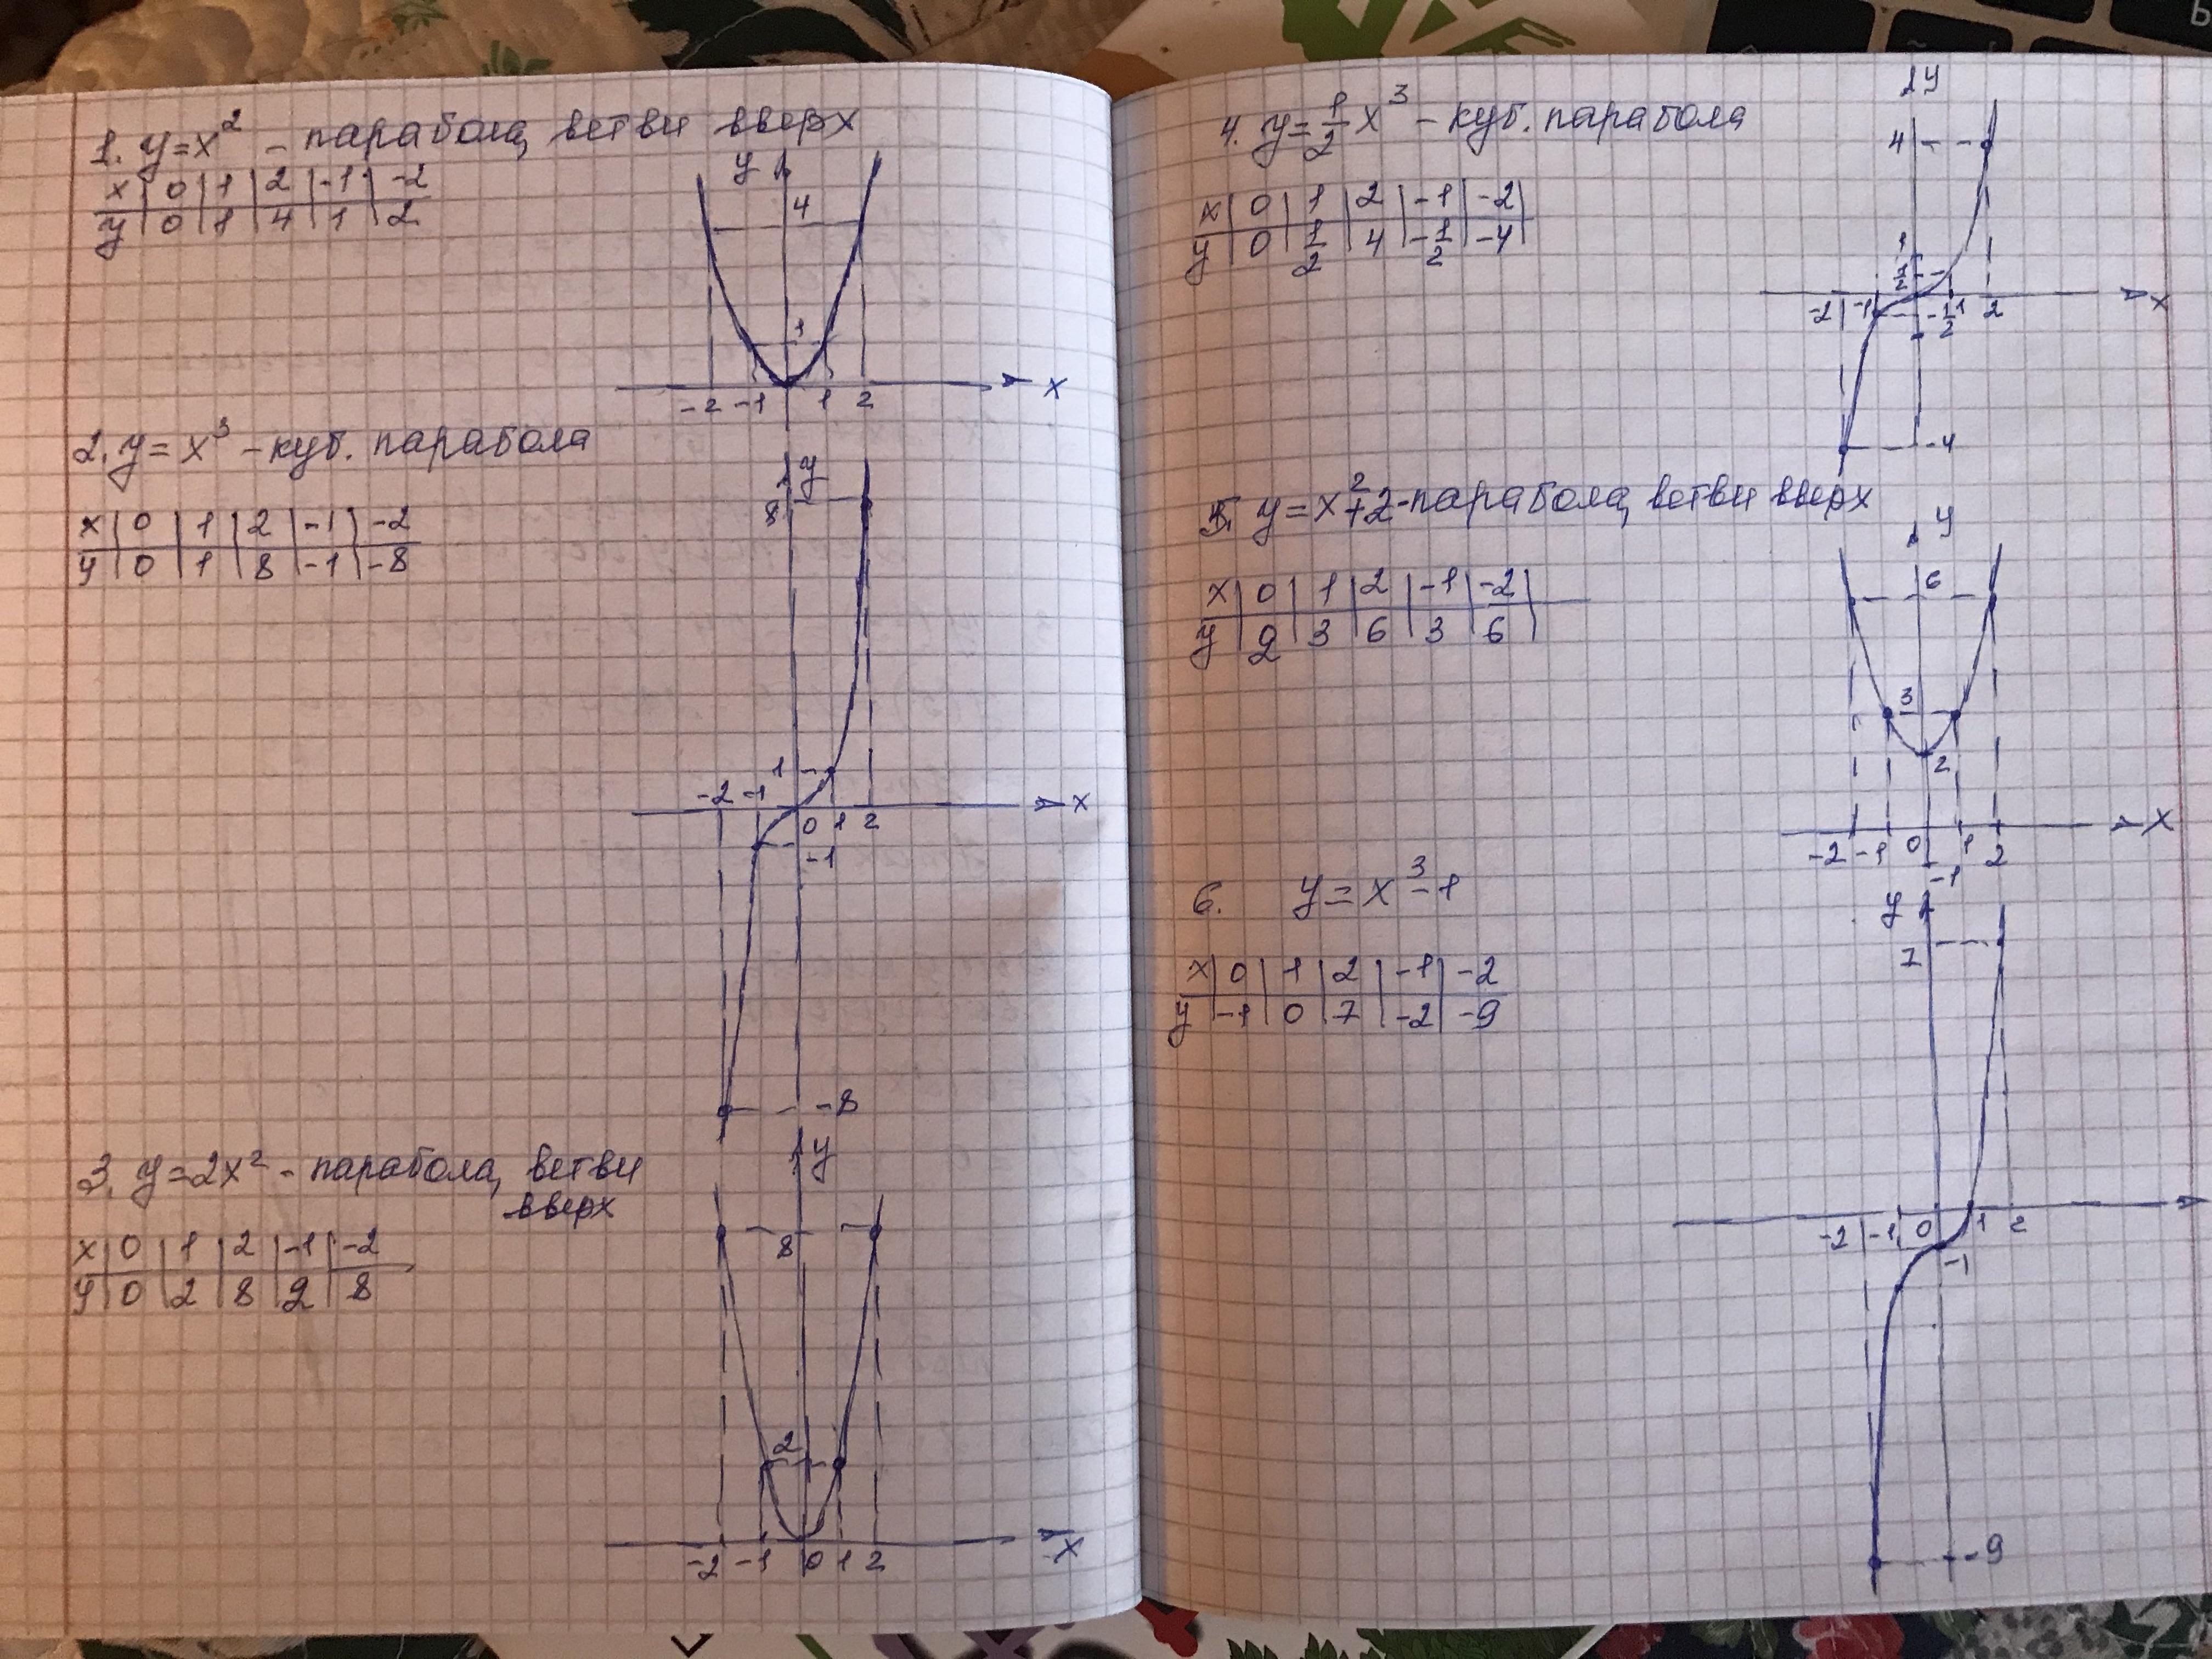 1. y=x² - парабола, ветви вверх
x | 0 | 1 | 2 | -1 | -2
y | 0 | 1 | 4 | 1 | 2
y
4
1
-2 -1 1 2
x
2. y = x³ - куб. парабола
x | 0 | 1 | 2 | -1 | -2
y | 0 | 1 | 8 | -1 | -8
y
8
1
-2 -1 0 1 2
x
-1
-8
3. y=2x² - парабола, ветви
вверх
x | 0 | 1 | 2 | -1 | -2
y | 0 | 2 | 8 | 2 | 8
y
8
2
-2 -1 0 1 2
x
4. y=1/2 x³ - куб. парабола
x | 0 | 1 | 2 | -1 | -2 |
y | 0 | 1/2 | 4 | -1/2 | -4 |
y
4
1
1/2
-2 -1 1 2
x
-1/2
-4
5. y=x²+2-парабола, ветви вверх
x | 0 | 1 | 2 | -1 | -2 |
y | 2 | 3 | 6 | 3 | 6 |
y
6
3
2
x
-2 -1 0 1 2
-1
6. y=x³-1
x | 0 | 1 | 2 | -1 | -2
y | -1 | 0 | 7 | -2 | -9
y
7
-2 -1 0 1 2
-1
-9